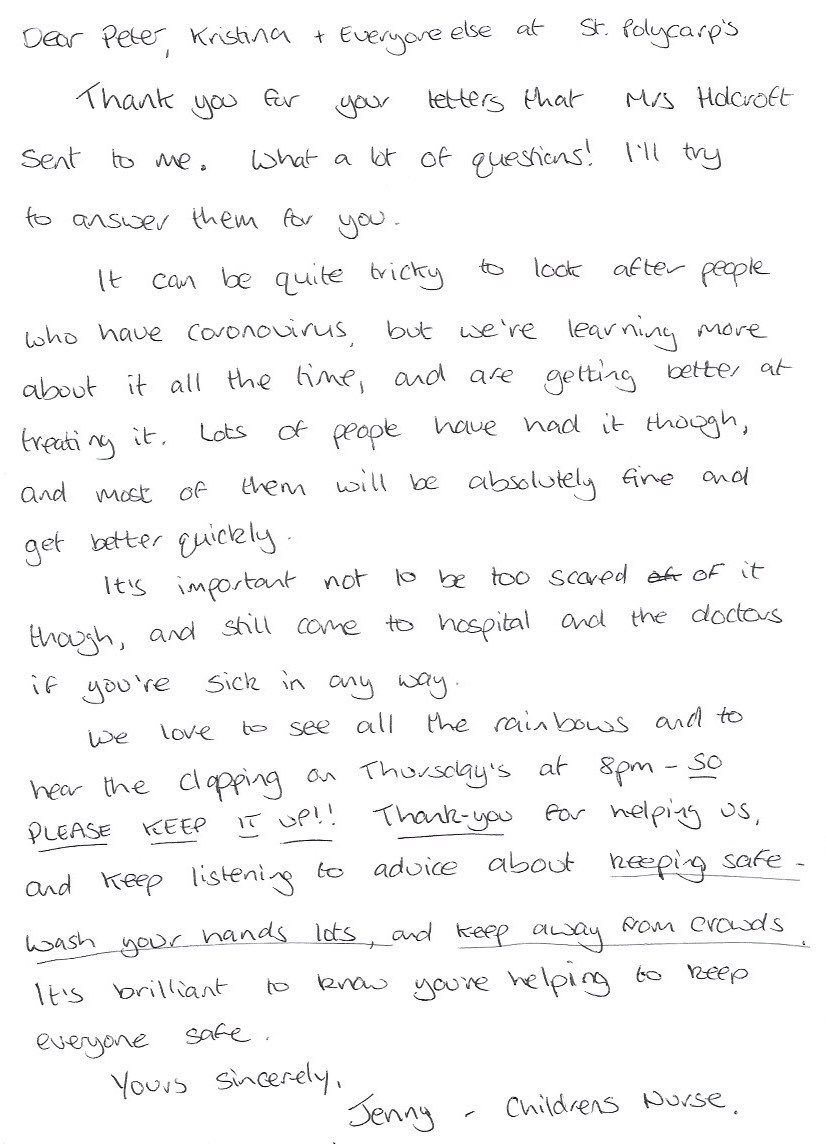 Dear Peter, Kristina + Everyone else at St. Polycarp's
Thank you for your letters that Mrs Holcroft
sent to me. What a lot of questions! I'll try
to answer them for you.
It can be quite tricky to look after people
who have coronovirus, but we're learning more
about it all the time, and are getting better at
treating it. Lots of people have had it though,
and most of them will be absolutely fine and
get better quickly.
It's important not to be too scared of of it
though, and still come to hospital and the doctors
if you're sick in any way.
We love to see all the rainbows and to
hear the clapping on Thursday's at 8pm - SO
PLEASE KEEP IT UP!! Thank-you for helping us,
and keep listening to advice about keeping safe -
wash your hands lots, and keep away from crowds.
It's brilliant to know you're helping to keep
everyone safe.
Yours sincerely,
Jenny - Childrens Nurse.